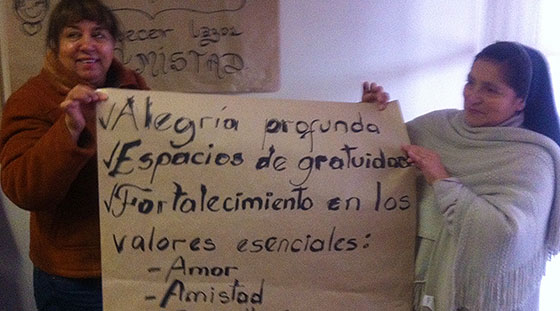 hacer lazos
AMISTAD
✓Alegría profunda
✓Espacios de gratuidad
✓Fortalecimiento en los
valores esenciales:
- Amor
- Amistad